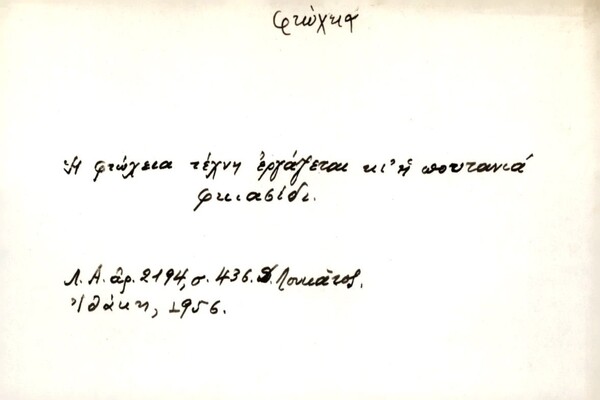 φτώχεια
Ἡ φτώχεια τέχνη ἐργάζεται κι' ἡ πουτανιά
φκιασίδι.
Λ. Α. ἀρ. 2194, σ. 436. Δ. Λουκᾶτος,
Ἰθάκη, 1956.